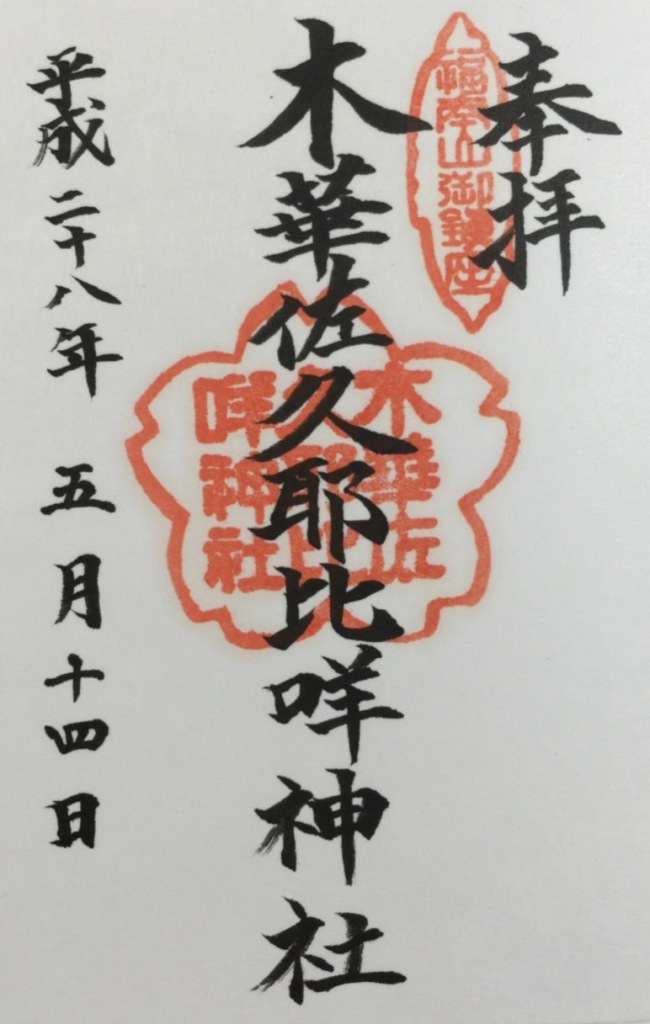 奉拝
福岡山御鎮座
木華佐久耶比咩神社
木華佐
久耶比
咩神社
平成二十八年 五月十四日